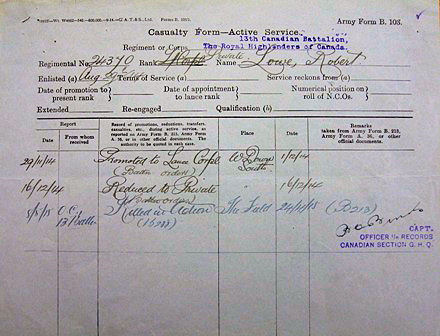 Army Form B. 103.
Casualty Form—Active Service.
13th Canadian Battalion,
Regiment or Corps The Royal Highlanders of Canada.
Regimental No. 24370 Rank Private Name Lowe, Robert
Enlisted (a) Aug Terms of Service (a) Service reckons from (a)
Date of promotion to present rank } Date of appointment to lance rank } Numerical position on roll of N.C.Os. }
Extended Re-engaged Qualification (b)
Report
Date From whom received
Record of promotions, reductions, transfers, casualties, etc., during active service, as reported on Army Form B. 213, Army Form A. 36, or in other official documents. The authority to be quoted in each case.
Place
Date
Remarks taken from Army Form B. 213, Army Form A. 36, or other official documents.
Promoted to Lance Corpl W. Down 1/12/14
(Battn orders) South
16/12/14 Reduced to Private 16/12/14
5/5/15 O.C. Killed in Action The Field 24/4/15 (B213)
13 Battn
CAPT.
OFFICER i/c RECORDS
CANADIAN SECTION G.H.Q.